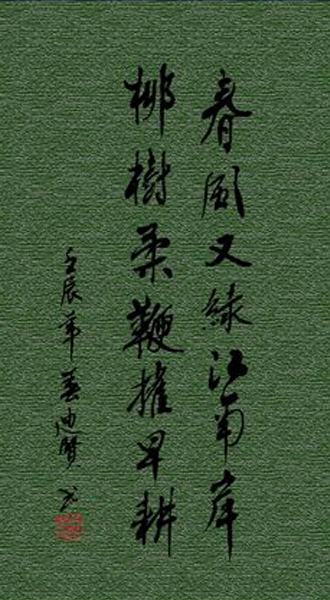 春風又綠江南岸
柳樹柔鞭摧早耕
壬辰年春迪賢